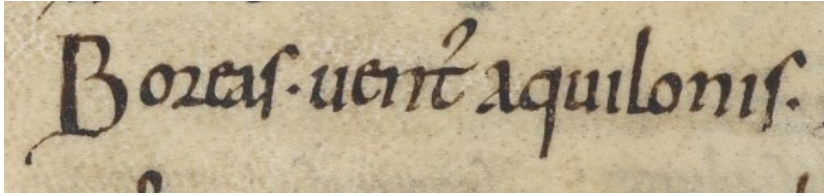 Boreas· uent᷒ aquilonis·